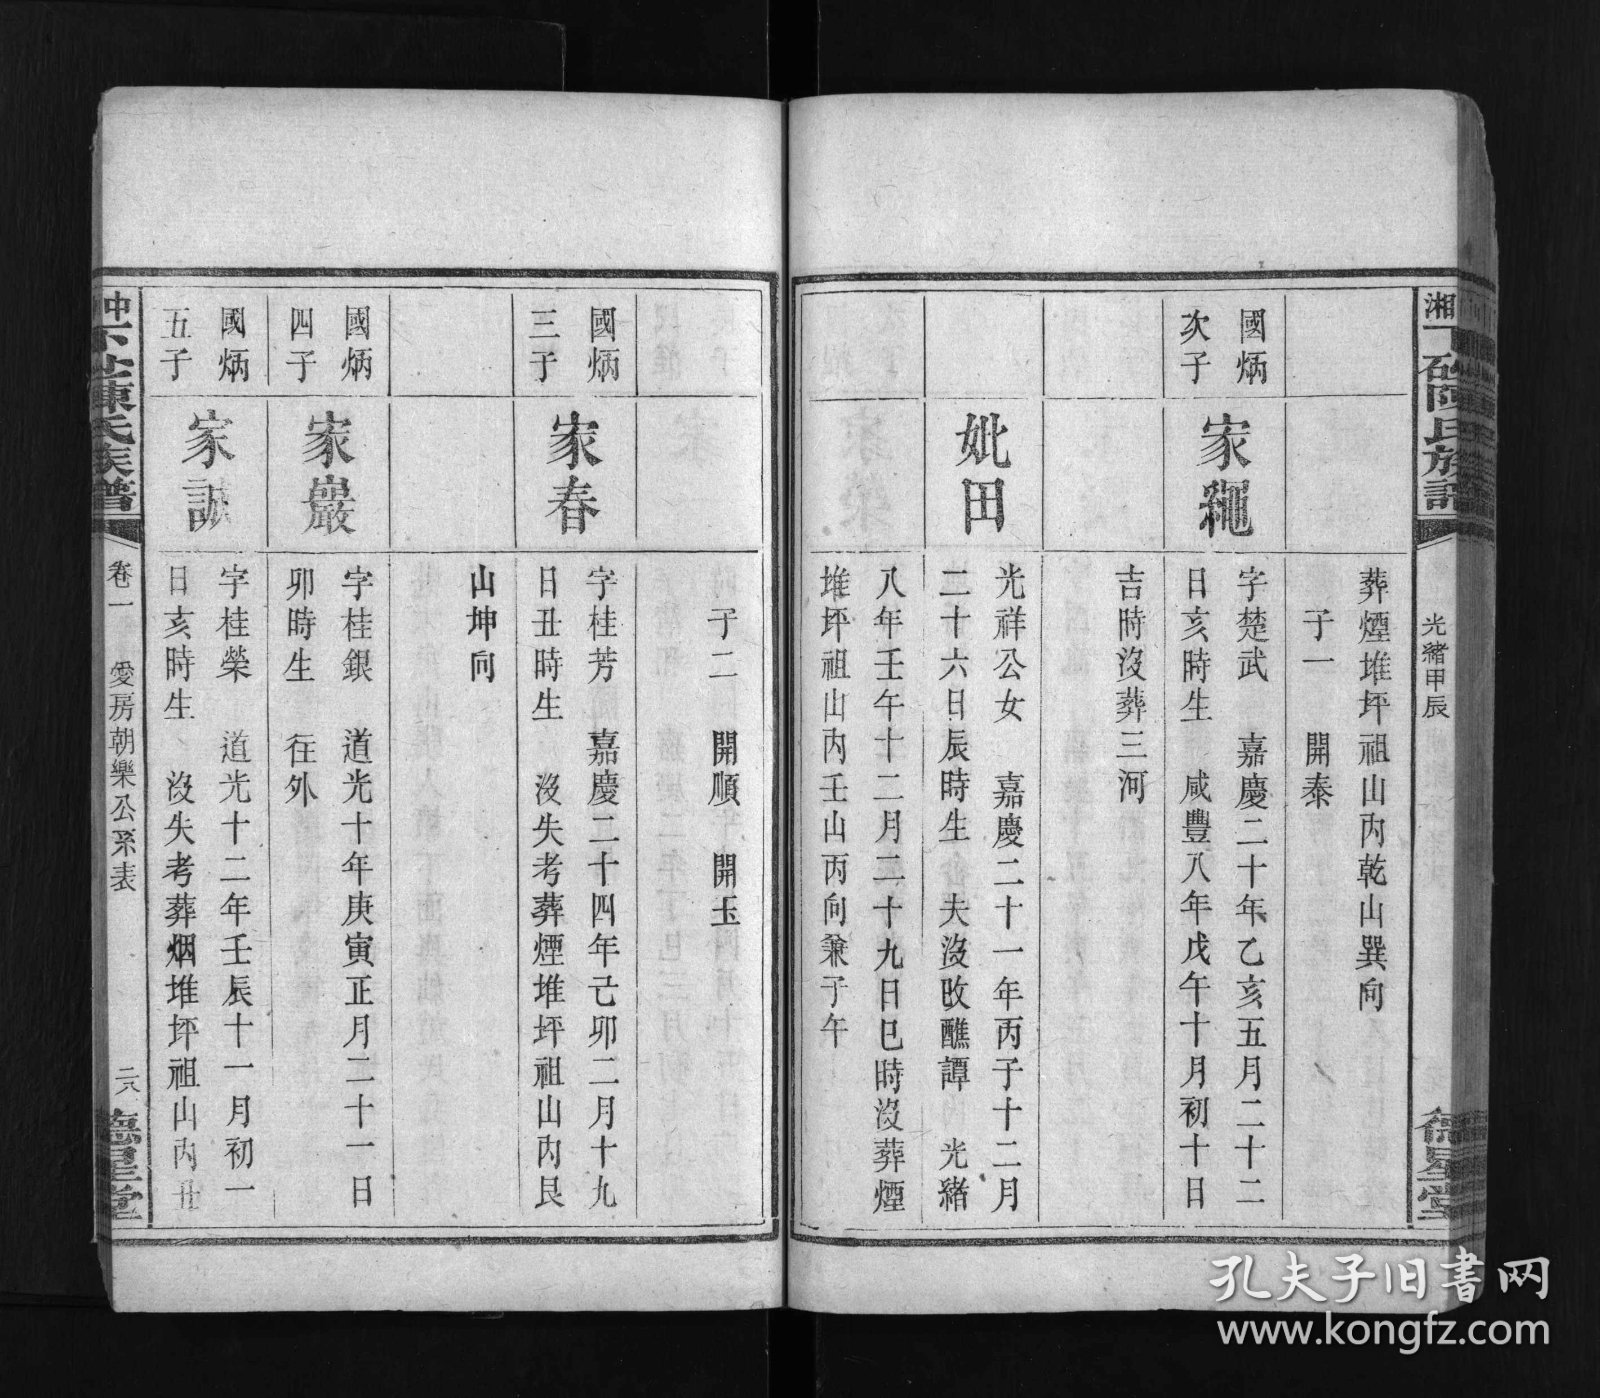 葬煙堆坪祖山內乾山巽向
子一 開泰
國炳
次子
家繩
字楚武 嘉慶二十年乙亥五月二十二
日亥時生 咸豐八年戊午十月初十日
吉時沒葬三河
妣田
光祥公女 嘉慶二十一年丙子十二月
二十六日辰時生 夫沒改醮譚 光緒
八年壬午十二月二十九日巳時沒葬煙
堆坪祖山內壬山丙向兼子午
光緒甲辰
子二 開順 開玉
國炳
三子
家春
字桂芳 嘉慶二十四年己卯二月十九
日丑時生 沒失考葬煙堆坪祖山內艮
山坤向
國炳
四子
家巖
字桂銀 道光十年庚寅正月二十一日
卯時生 往外
國炳
五子
家誠
字桂榮 道光十二年壬辰十一月初一
日亥時生 沒失考葬烟堆坪祖山內丑
陳氏族譜
卷一 愛房朝樂公系表 二八
德星堂
孔夫子旧書网
www.kongfz.com